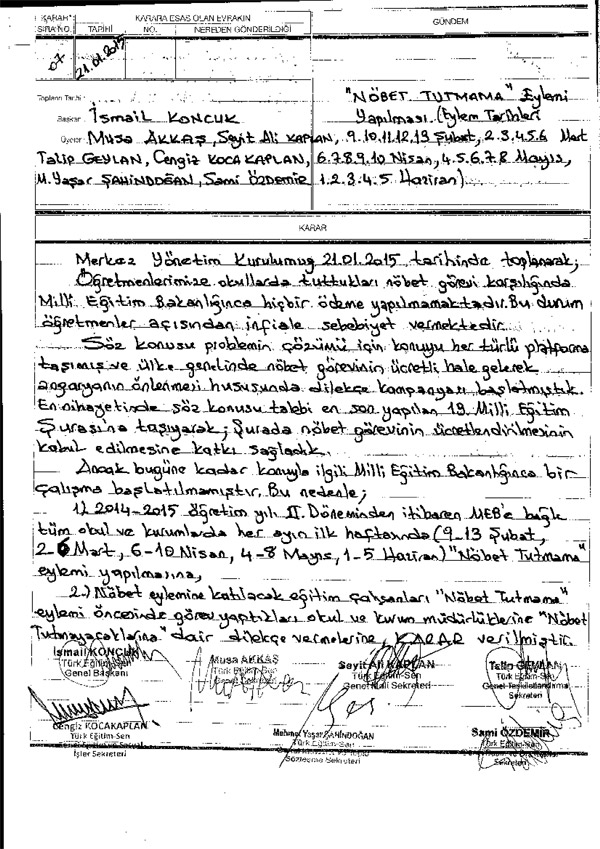 KARAR
SIRA NO.
KARARA ESAS OLAN EVRAKIN
TARİHİ
NO.
NEREDEN GÖNDERİLDİĞİ
GÜNDEM
07
21.01.2015
Toplantı Tarihi
Başkan İsmail KONCUK
Üyeler Musa AKKAŞ, Seyit Ali KAPLAN,
Talip GEYLAN, Cengiz KOCAKAPLAN,
M. Yaşar ŞAHİNDOĞAN, Sami ÖZDEMİR
"NÖBET TUTMAMA" Eylemi
Yapılması. (Eylem Tarihleri
9.10.11.12.13 Şubat, 2.3.4.5.6 Mart
6.7.8.9.10 Nisan, 4.5.6.7.8 Mayıs,
1.2.3.4.5 Haziran)
KARAR
Merkez Yönetim Kurulumuz 21.01.2015 tarihinde toplanarak;
Öğretmenlerimize okullarda tuttukları nöbet görevi karşılığında
Milli Eğitim Bakanlığınca hiçbir ödeme yapılmamaktadır. Bu durum
öğretmenler açısından infiale sebebiyet vermektedir.
Söz konusu problemin çözümü için konuyu her türlü platforma
taşımış ve ülke genelinde nöbet görevinin ücretli hale gelerek
angaryanın önlenmesi hususunda dilekçe kampanyası başlatmıştık.
En nihayetinde söz konusu talebi en son yapılan 19. Milli Eğitim
Şurasına taşıyarak; Şurada nöbet görevinin ücretlendirilmesinin
kabul edilmesine katkı sağladık.
Ancak bugüne kadar konuyla ilgili Milli Eğitim Bakanlığınca bir
çalışma başlatılmamıştır. Bu nedenle;
1) 2014-2015 öğretim yılı II. Döneminden itibaren MEB'e bağlı
tüm okul ve kurumlarda her ayın ilk haftasında (9-13 Şubat,
2-6 Mart, 6-10 Nisan, 4-8 Mayıs, 1-5 Haziran) "Nöbet Tutmama"
eylemi yapılmasına,
2.) Nöbet eylemine katılacak eğitim çalışanları "Nöbet Tutmama"
eylemi öncesinde görev yaptıkları okul ve kurum müdürlüklerine "Nöbet
Tutmayacaklarına" dair dilekçe vermelerine, KARAR verilmiştir.
İsmail KONCUK
Türk Eğitim-Sen
Genel Başkanı
Musa AKKAŞ
Türk Eğitim-Sen
Genel Sekreteri
Seyit Ali KAPLAN
Türk Eğitim-Sen
Genel Mali Sekreteri
Talip GEYLAN
Türk Eğitim-Sen
Genel Teşkilatlandırma
Sekreteri
Cengiz KOCAKAPLAN
Türk Eğitim-Sen
İşler Sekreteri
Mehmet Yaşar ŞAHİNDOĞAN
Türk Eğitim-Sen
Sözleşme Sekreteri
Sami ÖZDEMİR
Türk Eğitim-Sen
Sekreteri